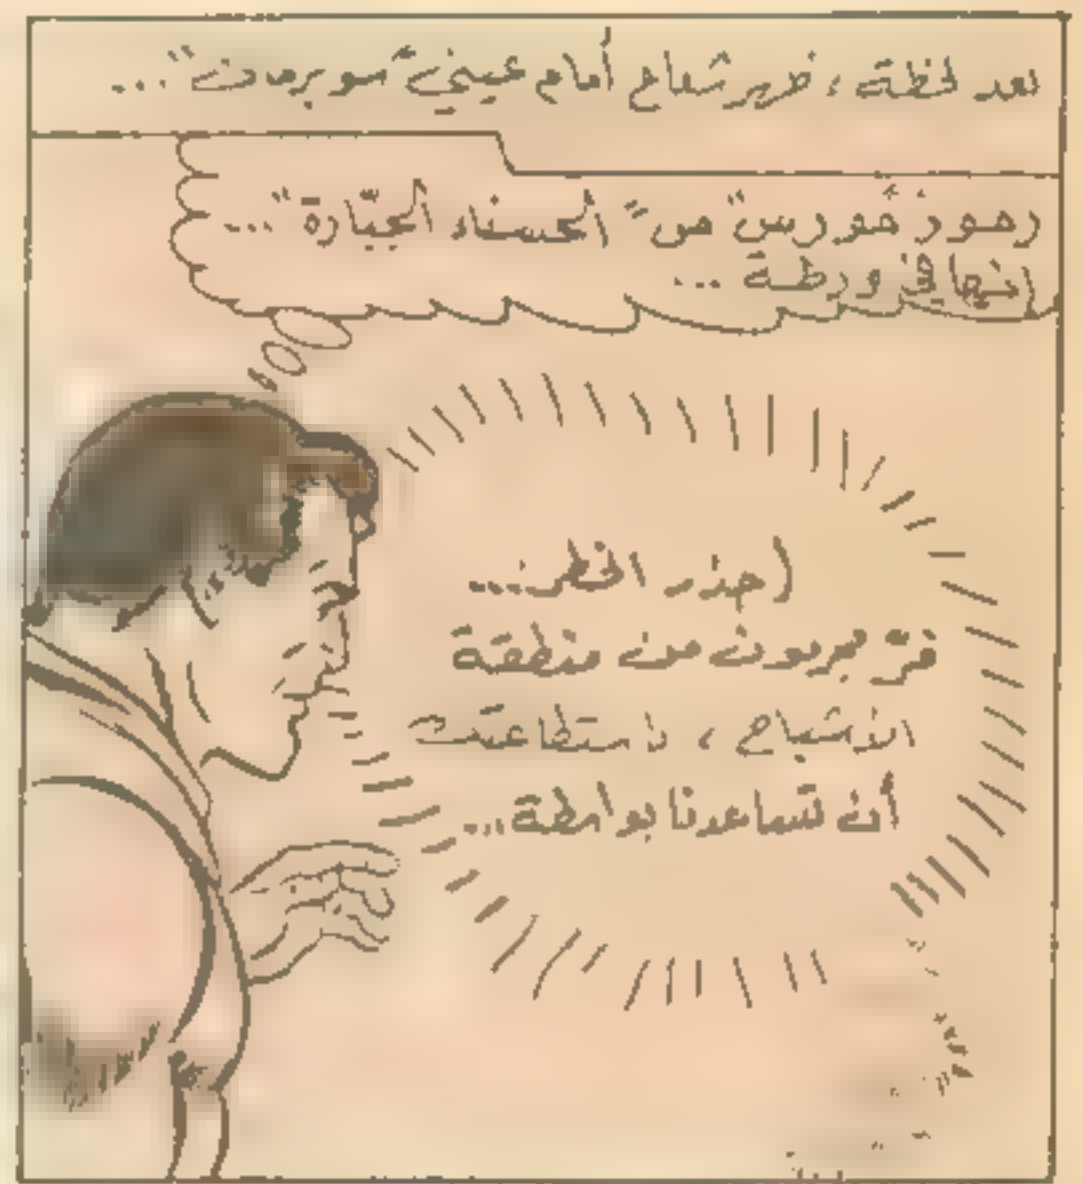 بعد لحظة ، ظهر شعاع أمام عيني "سوبرمان" ...
رموز "مورس" من "الحسناء الجبّارة" ...
إنها في ورطة ...
احذر الخطر ...
فرّ من منطقة
الأشباح ، باستطاعتك
أن تساعدنا بواسطة ...